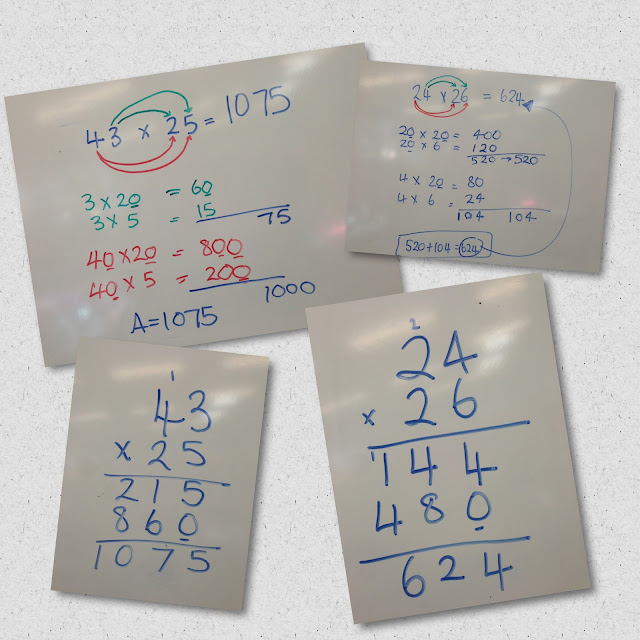 43 x 25 = 1075
3 x 20 = 60
3 x 5 = 15
75
40 x 20 = 800
40 x 5 = 200
1000
A=1075
24 x 26 = 624
20 x 20 = 400
20 x 6 = 120
520 → 520
4 x 20 = 80
4 x 6 = 24
104 104
520+104=624
1
43
x 25
215
860
1075
2
24
x 26
144
480
624